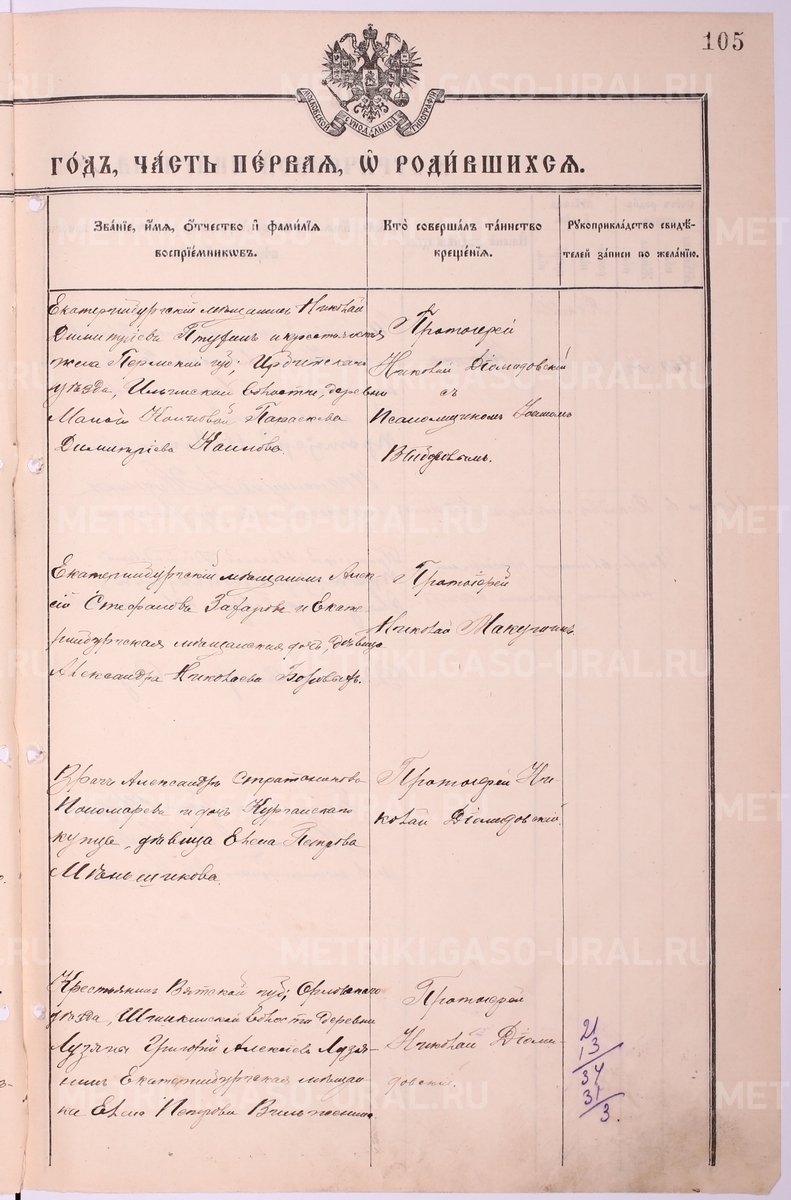 105
МОСКОВСКОЙ СѴНОДАЛЬНОЙ ТИПОГРАФІИ
ГО́ДЪ, ЧА́СТЬ ПЕ́РВАЯ, Ѡ҆ РОДИ́ВШИХСЯ.
Зва́ніе, и҆́мя, ѻ҆́тчество и҆ фами́лія
воспріе́мникѡвъ.
Кто̀ соверша́лъ та́инство
креще́нія.
Рꙋкоприкла́дство свидѣ́-
телей за́писи по жела́нію.
Екатеринбургскій мѣщанинъ Николай
Димитріевъ и крестьянская
жена Пермской губ; Ирбитскаго
уѣзда, волости, деревни
Малой Параскева
Димитріева
Протоіерей
Николай Діомидовскій
съ
Псаломщикомъ Іоанномъ
Екатеринбургскій мѣщанинъ Алек-
сій Стефановъ Захаровъ и Екате-
ринбургская мѣщанская дочь, дѣвица
Александра Николаева
Протоіерей
Николай Макушинъ
Врачъ Александръ Стратониковъ
Пономаревъ и дочь Курганскаго
купца, дѣвица Елена Петрова
Меньщикова.
Протоіерей Ни-
колай Діомидовскій.
Крестьянинъ Вятской губ; Орловскаго
уѣзда, волости деревни
Лузяны Григорій Алексѣевъ Лузя-
нинъ Екатеринбургская мѣщан-
ка Елена Петрова
Протоіерей
Николай Діоми-
довскій.
21
13
34
31
3.
METRIKI.GASO-URAL.RU